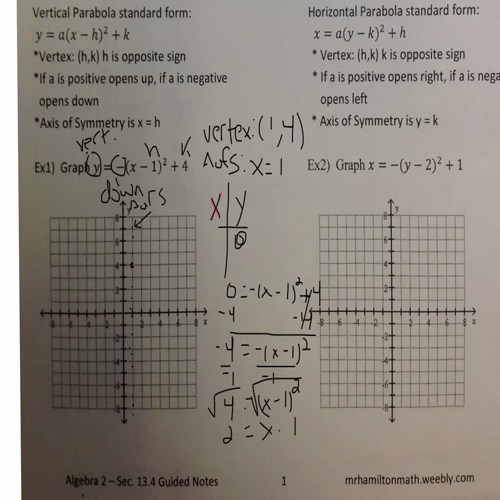 Vertical Parabola standard form:
y = a(x − h)² + k
* Vertex: (h,k) h is opposite sign
*If a is positive opens up, if a is negative
opens down
*Axis of Symmetry is x = h
Horizontal Parabola standard form:
x = a(y − k)² + h
* Vertex: (h,k) k is opposite sign
* If a is positive opens right, if a is nega
opens left
* Axis of Symmetry is y = k
vert.
h k
vertex: (1,4)
Ex1) Graph y = −(x − 1)² + 4
AofS: x=1
down
x y
0
0=-(x-1)²+4
-4 -4
-4 = -(x-1)²
-1 -1
√4 = √(x-1)²
2 = x - 1
8
6
4
2
-8 -6 -4 -2 2 4 6 8 x
-2
-4
-6
-8
Ex2) Graph x = −(y − 2)² + 1
y
8
6
4
2
-8 -6 -4 -2 2 4 6 8 x
-2
-4
-6
-8
Algebra 2 – Sec. 13.4 Guided Notes 1 mrhamiltonmath.weebly.com